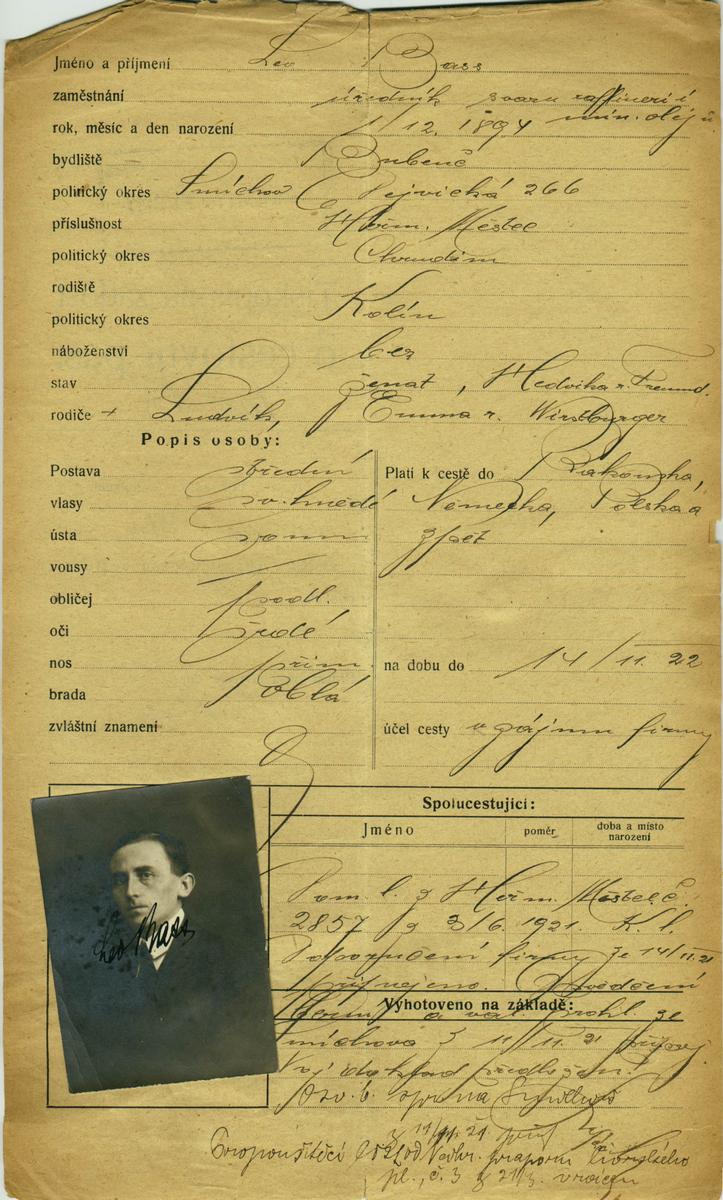 Jméno a příjmení Leo Bass
zaměstnání úředník svazu raffinerií
min. olejů
rok, měsíc a den narození 1/12. 1894
bydliště Bubeneč
politický okres Smíchov Dejvická 266
příslušnost Heřm. Městec
politický okres Chrudim
rodiště
politický okres Kolín
náboženství bez
stav ženat, Hedvika r. Freund.
rodiče + Ludvík, Emma r. Würzburger
Popis osoby:
Postava střední
vlasy sv. hnědé
ústa
vousy —
obličej podl.
oči šedé
nos přím.
brada oblá
zvláštní znamení
Platí k cestě do Rakouska,
Německa, Polska a
zpět
na dobu do 14/11. 22
účel cesty v zájmu firmy
Spolucestující:
Jméno poměr doba a místo narození
Dom. l. z Heřm. Městce č.
2857 z 3/6. 1921. K. l.
Doporučení firmy ze 14/11. 21
připojeno. Osvědčení
Vyhotoveno na základě:
berní a vál. prohl. ze
Smíchova z 11/11. 21 připoj.
Voj. doklad předložen.
Leo Bass
z 14/11. 21
pl., č. 3 z